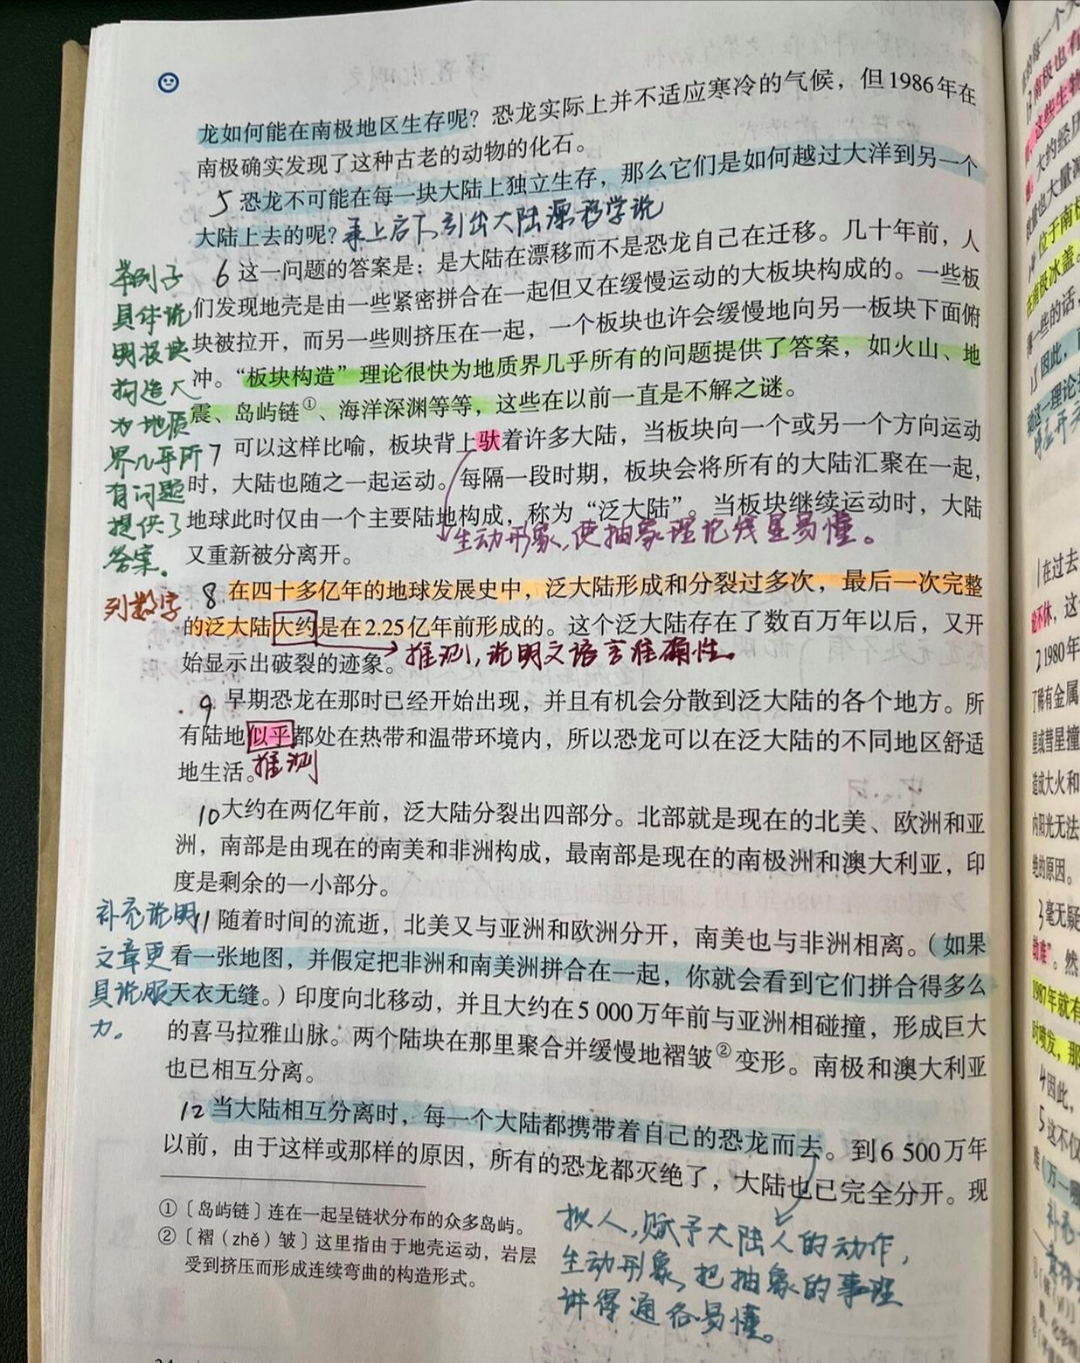 龙如何能在南极地区生存呢？恐龙实际上并不适应寒冷的气候，但1986年在
南极确实发现了这种古老的动物的化石。
5 恐龙不可能在每一块大陆上独立生存，那么它们是如何越过大洋到另一个
大陆上去的呢？承上启下，引出大陆漂移学说
6 这一问题的答案是：是大陆在漂移而不是恐龙自己在迁移。几十年前，人
们发现地壳是由一些紧密拼合在一起但又在缓慢运动的大板块构成的。一些板
块被拉开，而另一些则挤压在一起，一个板块也许会缓慢地向另一板块下面俯
冲。“板块构造”理论很快为地质界几乎所有的问题提供了答案，如火山、地
震、岛屿链①、海洋深渊等等，这些在以前一直是不解之谜。
举例子
具体说
明板块
构造人
为地质
界几乎所
有问题
提供了
答案。
7 可以这样比喻，板块背上驮着许多大陆，当板块向一个或另一个方向运动
时，大陆也随之一起运动。每隔一段时期，板块会将所有的大陆汇聚在一起，
地球此时仅由一个主要陆地构成，称为“泛大陆”。当板块继续运动时，大陆
又重新被分离开。
生动形象，使抽象理论浅显易懂。
列数字
8 在四十多亿年的地球发展史中，泛大陆形成和分裂过多次，最后一次完整
的泛大陆大约是在2.25亿年前形成的。这个泛大陆存在了数百万年以后，又开
始显示出破裂的迹象。推测，说明文语言准确性。
9 早期恐龙在那时已经开始出现，并且有机会分散到泛大陆的各个地方。所
有陆地似乎都处在热带和温带环境内，所以恐龙可以在泛大陆的不同地区舒适
地生活。推测
10 大约在两亿年前，泛大陆分裂出四部分。北部就是现在的北美、欧洲和亚
洲，南部是由现在的南美和非洲构成，最南部是现在的南极洲和澳大利亚，印
度是剩余的一小部分。
补充说明
文章更
具说服
力。
11 随着时间的流逝，北美又与亚洲和欧洲分开，南美也与非洲相离。（如果
看一张地图，并假定把非洲和南美洲拼合在一起，你就会看到它们拼合得多么
天衣无缝。）印度向北移动，并且大约在5 000万年前与亚洲相碰撞，形成巨大
的喜马拉雅山脉。两个陆块在那里聚合并缓慢地褶皱②变形。南极和澳大利亚
也已相互分离。
12 当大陆相互分离时，每一个大陆都携带着自己的恐龙而去。到6 500万年
以前，由于这样或那样的原因，所有的恐龙都灭绝了，大陆也已完全分开。现
拟人，赋予大陆人的动作，
生动形象，把抽象的事理
讲得通俗易懂。
①〔岛屿链〕连在一起呈链状分布的众多岛屿。
②〔褶（zhě）皱〕这里指由于地壳运动，岩层
受到挤压而形成连续弯曲的构造形式。